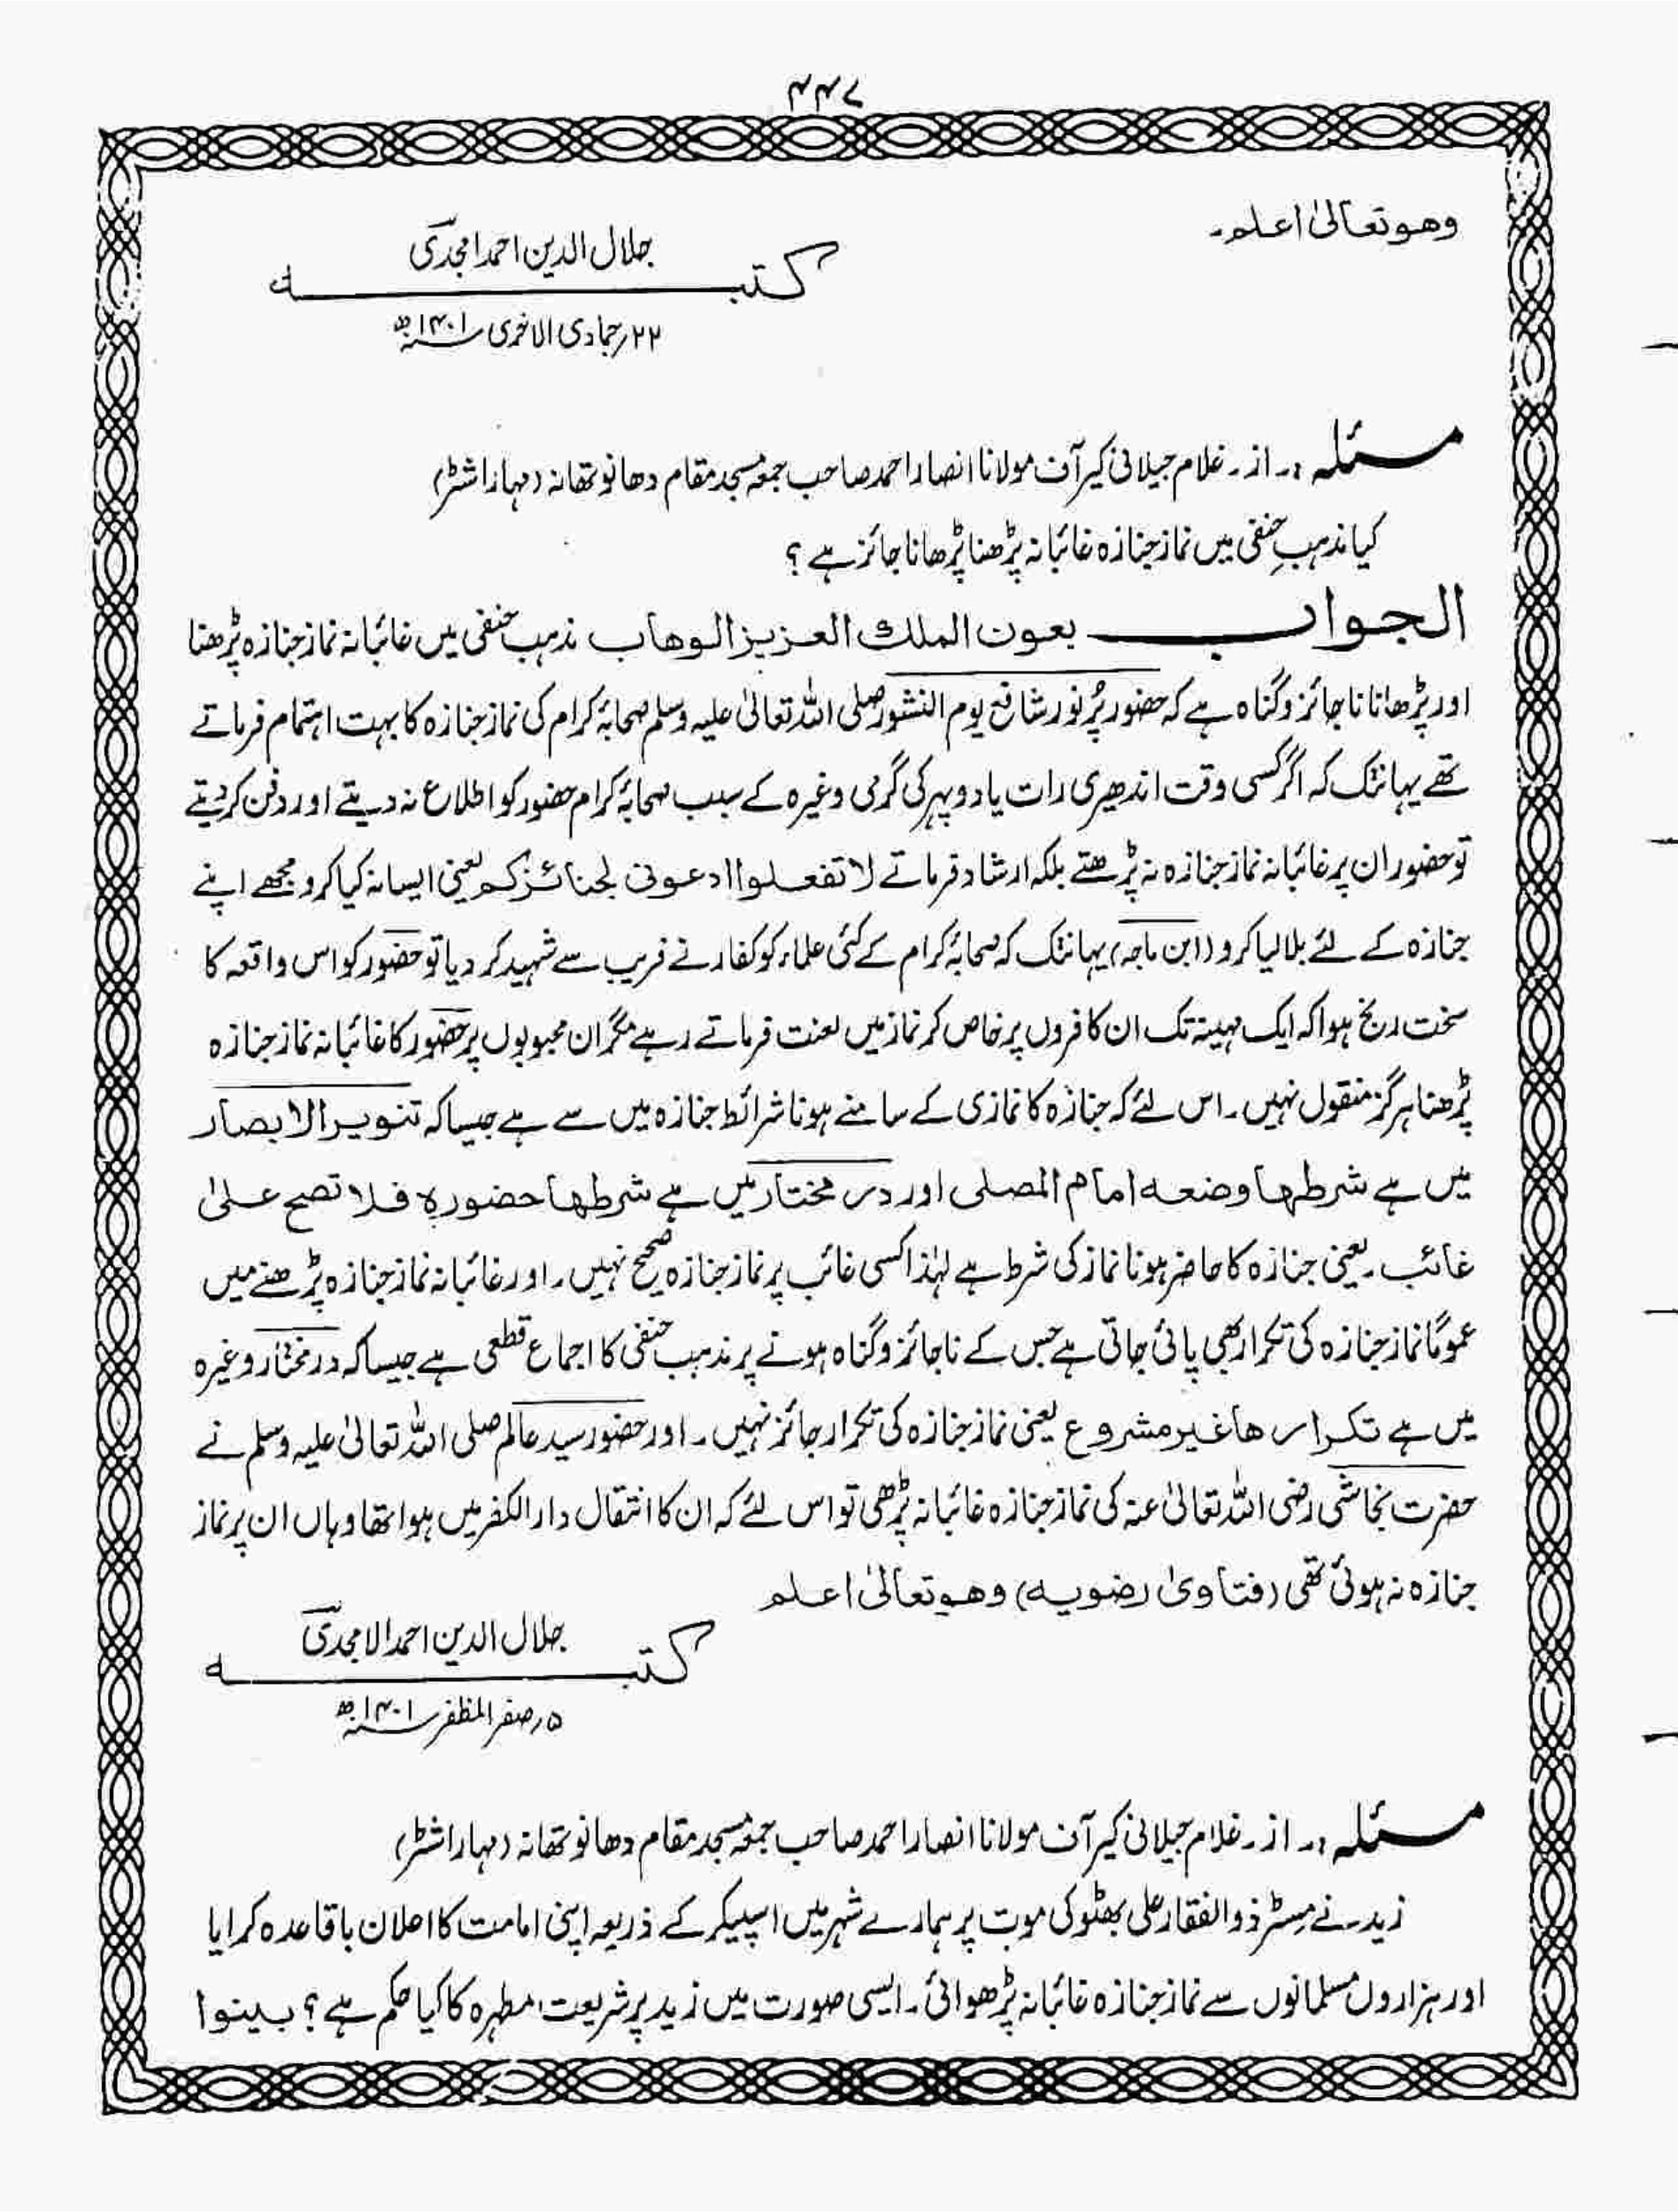 ۴۴۷
وھو تعالیٰ اعلم۔
جلال الدین احمد امجدی
کتبہ
۲۲؍جمادی الاخریٰ سنہ ۱۴۰۱ھ
مسئلہ :۔ از۔ غلام جیلانی کیر آف مولانا انصار احمد صاحب جمعہ مسجد مقام دھانو تھانہ (مہاراشٹر)
کیا مذہبِ حنفی میں نماز جنازہ غائبانہ پڑھنا پڑھانا جائز ہے؟
الجواب بعون الملك العزيز الوهاب مذہب حنفی میں غائبانہ نماز جنازہ پڑھنا
اور پڑھانا ناجائز و گناہ ہے کہ حضور پُرنور شافع یوم النشور صلی اللہ تعالیٰ علیہ وسلم صحابۂ کرام کی نماز جنازہ کا بہت اہتمام فرماتے
تھے یہانتک کہ اگر کسی وقت اندھیری رات یا دوپہر کی گرمی وغیرہ کے سبب صحابۂ کرام حضور کو اطلاع نہ دیتے اور دفن کر دیتے
تو حضور ان پر غائبانہ نماز جنازہ نہ پڑھتے بلکہ ارشاد فرماتے لا تفعلوا ادعونى لجنائزكم یعنی ایسا نہ کیا کرو مجھے اپنے
جنازہ کے لئے بلا لیا کرو (ابن ماجہ) یہانتک کہ صحابۂ کرام کے کئی علماء کو کفار نے فریب سے شہید کر دیا تو حضور کو اس واقعہ کا
سخت رنج ہوا کہ ایک مہینہ تک ان کافروں پر خاص کر نماز میں لعنت فرماتے رہے مگر ان محبوبوں پر حضور کا غائبانہ نماز جنازہ
پڑھنا ہرگز منقول نہیں۔ اس لئے کہ جنازہ کا نمازی کے سامنے ہونا شرائط جنازہ میں سے ہے جیسا کہ تنویر الابصار
میں ہے شرطها وضعه امام المصلى اور در مختار میں ہے شرطها حضوره فلا تصح على
غائب۔ یعنی جنازہ کا حاضر ہونا نماز کی شرط ہے لہٰذا کسی غائب پر نماز جنازہ صحیح نہیں۔ اور غائبانہ نماز جنازہ پڑھنے میں
عموماً نماز جنازہ کی تکرار بھی پائی جاتی ہے جس کے ناجائز و گناہ ہونے پر مذہب حنفی کا اجماع قطعی ہے جیسا کہ در مختار وغیرہ
میں ہے تكرارها غير مشروع یعنی نماز جنازہ کی تکرار جائز نہیں۔ اور حضور سید عالم صلی اللہ تعالیٰ علیہ وسلم نے
حضرت نجاشی رضی اللہ تعالیٰ عنہ کی نماز جنازہ غائبانہ پڑھی تو اس لئے کہ ان کا انتقال دار الکفر میں ہوا تھا وہاں ان پر نماز
جنازہ نہ ہوئی تھی (فتاویٰ رضویہ) وھو تعالیٰ اعلم
جلال الدین احمد الامجدی
کتبہ
۵؍صفر المظفر سنہ ۱۴۰۱ھ
مسئلہ :۔ از۔ غلام جیلانی کیر آف مولانا انصار احمد صاحب جمعہ مسجد مقام دھانو تھانہ (مہاراشٹر)
زید نے مسٹر ذوالفقار علی بھٹو کی موت پر ہمارے شہر میں اسپیکر کے ذریعہ اپنی امامت کا اعلان باقاعدہ کرایا
اور ہزاروں مسلمانوں سے نماز جنازہ غائبانہ پڑھوائی۔ ایسی صورت میں زید پر شریعت مطہرہ کا کیا حکم ہے؟ بینوا